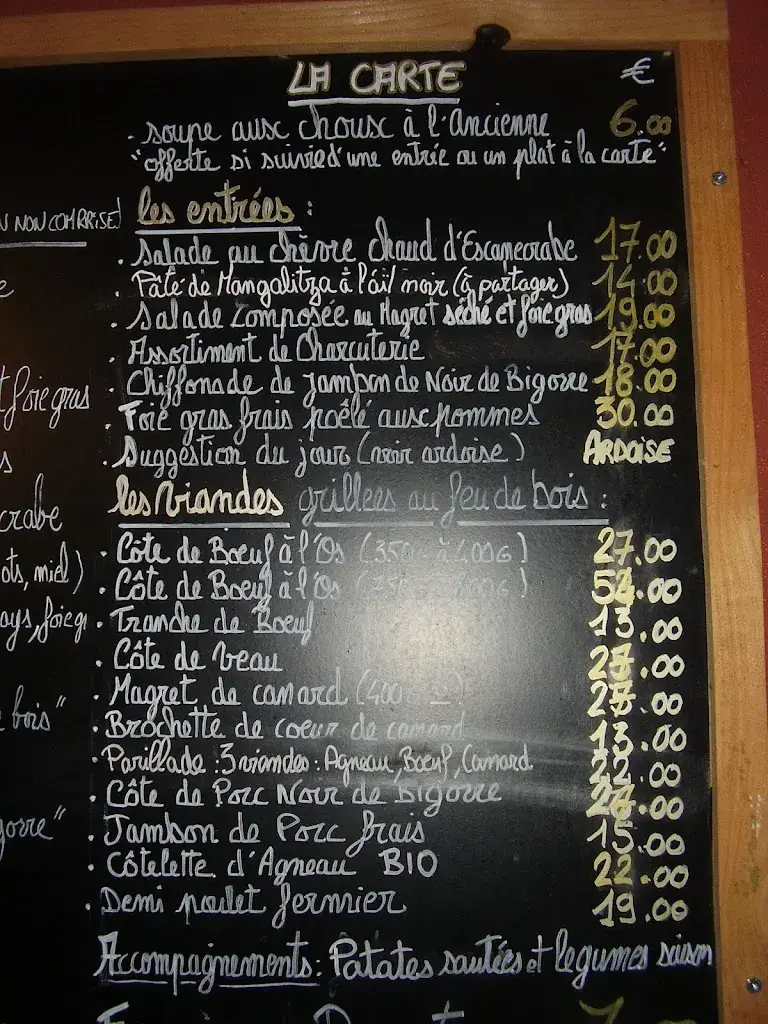 LA CARTE €
. soupe aux choux à l'Ancienne 6.00
"offerte si suivie d'une entrée ou un plat à la carte"
N NON COMPRISE)
les entrées :
. Salade au chèvre chaud d'Escanecrabe 17.00
. Pâté de Mangalitza à l'ail noir (à partager) 14.00
. Salade composée au Magret séché et foie gras 19.00
. Assortiment de Charcuterie 17.00
. Chiffonade de jambon de Noir de Bigorre 18.00
t foie gras
. Foie gras frais poêlé aux pommes 30.00
s
. Suggestion du jour (voir ardoise) ARDOISE
les Viandes grillées au feu de bois :
crabe
. Côte de Boeuf à l'Os (350G à 400G) 27.00
ots, miel)
. Côte de Boeuf à l'Os 00.00
ays, foie g
. Tranche de Boeuf 13.00
. Côte de veau .00
. Magret de canard (400G .00
e bois"
. Brochette de coeur de canard 13.00
. Parillade : 3 viandes : Agneau, Boeuf, Canard 22.00
. Côte de Porc Noir de Bigorre .00
gorre"
. Jambon de Porc frais 15.00
. Côtelette d'Agneau BIO 22.00
. Demi poulet fermier 19.00
Accompagnements : Patates sautées et legumes saison